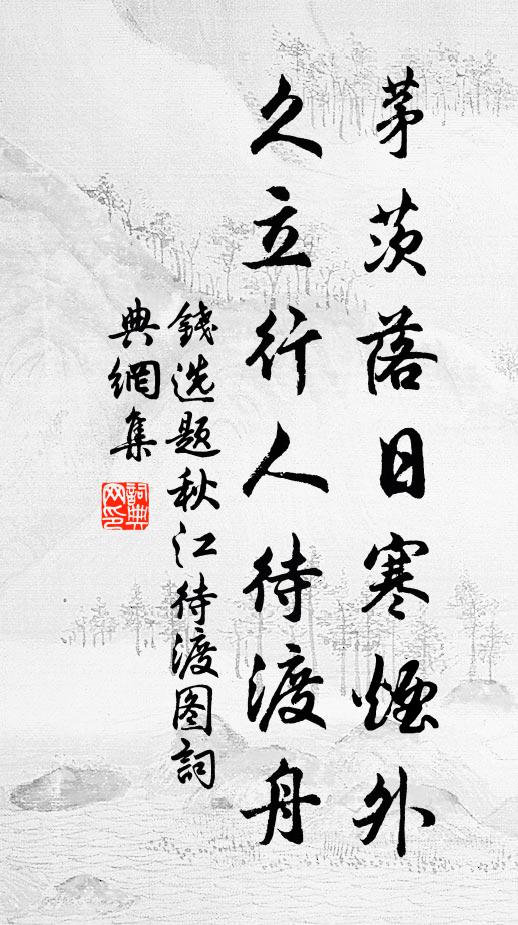 茅茨落日寒煙外
久立行人待渡舟
錢选题秋江待渡图詞
典網集
詞典
网印